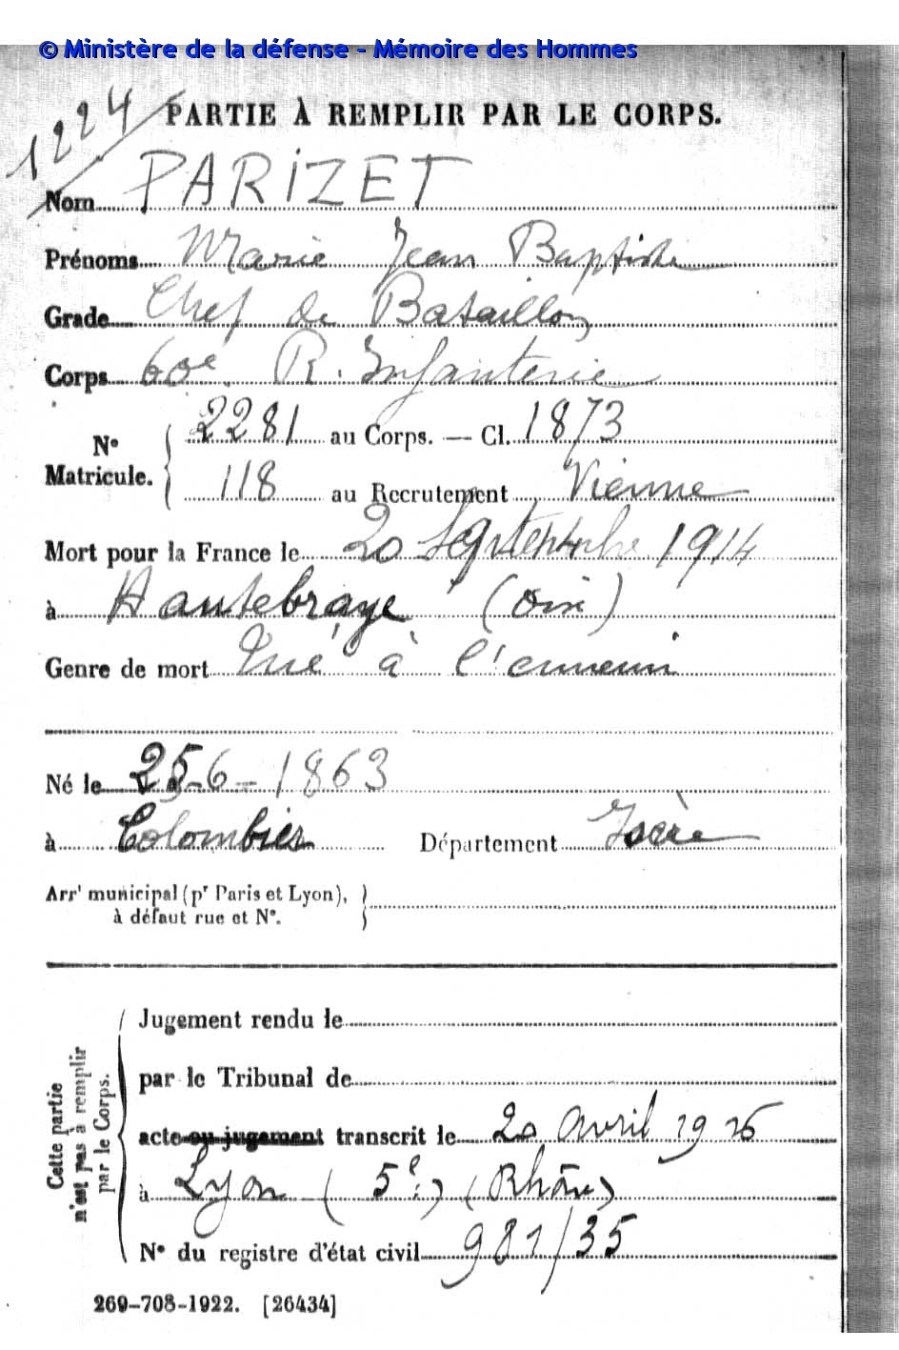 © Ministère de la défense - Mémoire des Hommes
1224
PARTIE À REMPLIR PAR LE CORPS.
Nom PARIZET
Prénoms Marie Jean Baptiste
Grade Chef de Bataillon
Corps 60e R. Infanterie
N° Matricule. { 2281 au Corps. — Cl. 1873
118 au Recrutement Vienne
Mort pour la France le 20 Septembre 1914
à Hautebraye (Oise)
Genre de mort Tué à l'ennemi
Né le 25-6-1863
à Colombier Département Isère
Arrt municipal (pr Paris et Lyon), }
à défaut rue et N°.
Cette partie n'est pas à remplir par le Corps.
Jugement rendu le
par le Tribunal de
acte ou jugement transcrit le 20 Avril 1916
à Lyon (5e) (Rhône)
N° du registre d'état civil 981/35
269-708-1922. [26434]